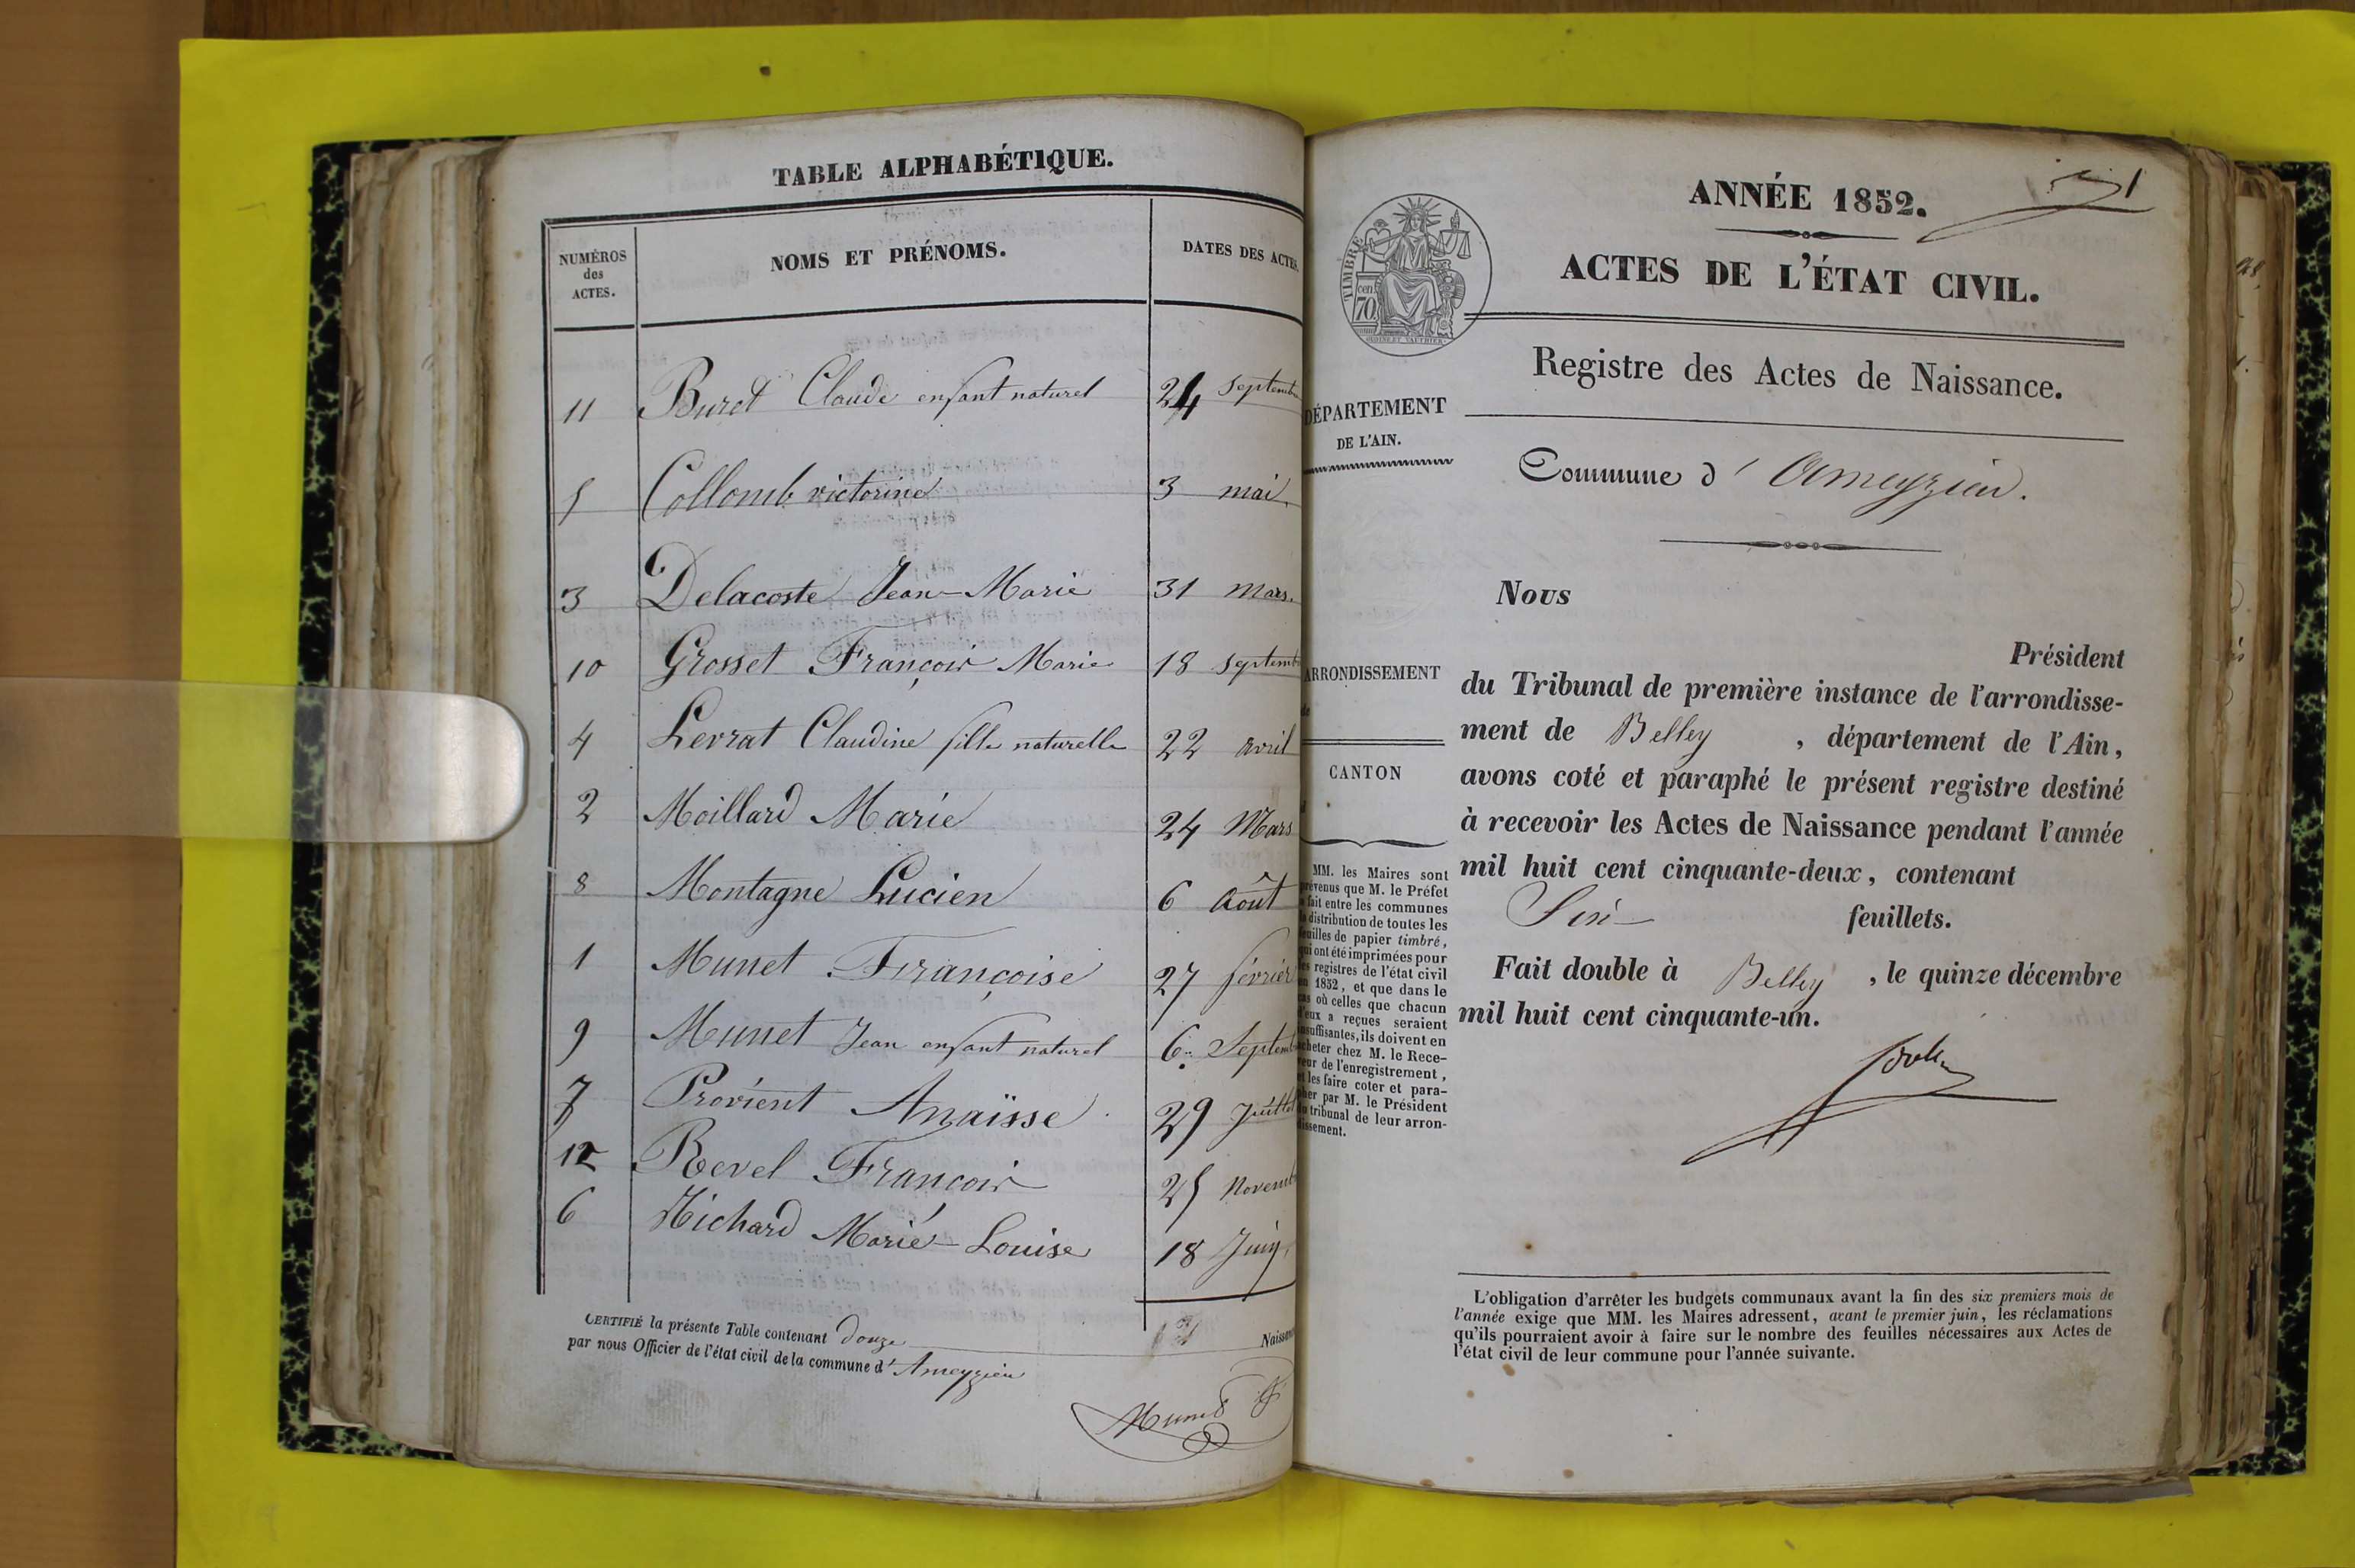 TABLE ALPHABÉTIQUE.
NUMÉROS des ACTES.
NOMS ET PRÉNOMS.
DATES DES ACTES.
11 Buret Claude enfant naturel 24 septembre
5 Collomb victorine 3 mai
3 Delacoste Jean-Marie 31 Mars.
10 Grosset François Marie 18 septemb
4 Levrat Claudine fille naturelle 22 avril
2 Moillard Marie 24 Mars
8 Montagne Lucien 6 Août
1 Munet Françoise 27 février
9 Munet Jean enfant naturel 6 Septemb
7 Provient Anaïsse 29 Juillet
12 Revel François 25 Novemb
6 Richard Marie-Louise 18 Juin
CERTIFIÉ la présente Table contenant douze Naissan
par nous Officier de l'état civil de la commune d'Ameyzieu
Munet
1
ANNÉE 1852.
ACTES DE L'ÉTAT CIVIL.
TIMBRE
cen. 70
Registre des Actes de Naissance.
DÉPARTEMENT
DE L'AIN.
Commune d'Ameyzieu.
Nous
Président
ARRONDISSEMENT
du Tribunal de première instance de l'arrondisse-
ment de Belley, département de l'Ain,
CANTON
avons coté et paraphé le présent registre destiné
à recevoir les Actes de Naissance pendant l'année
mil huit cent cinquante-deux, contenant
Six feuillets.
Fait double à Belley, le quinze décembre
mil huit cent cinquante-un.
MM. les Maires sont
prévenus que M. le Préfet
a fait entre les communes
la distribution de toutes les
feuilles de papier timbré,
qui ont été imprimées pour
les registres de l'état civil
en 1852, et que dans le
cas où celles que chacun
d'eux a reçues seraient
insuffisantes, ils doivent en
acheter chez M. le Rece-
veur de l'enregistrement,
et les faire coter et para-
pher par M. le Président
du tribunal de leur arron-
dissement.
L'obligation d'arrêter les budgets communaux avant la fin des six premiers mois de
l'année exige que MM. les Maires adressent, avant le premier juin, les réclamations
qu'ils pourraient avoir à faire sur le nombre des feuilles nécessaires aux Actes de
l'état civil de leur commune pour l'année suivante.